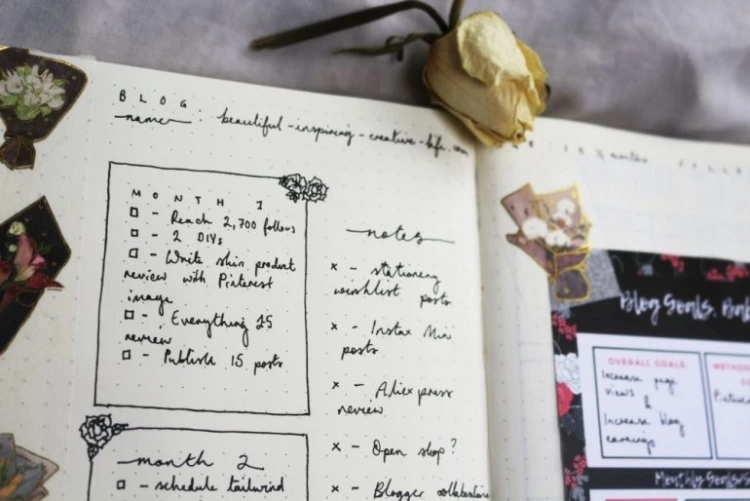 BLOG
name
beautiful-inspiring-creative-life.com
MONTH 1
- Reach 2,700 follows
- 2 DIYs
- Write skin product
review with Pinterest
image
- Everything £5
review
- Publish 15 posts
month 2
- schedule tailwind
notes
x - stationery
wishlist posts
x - Instax Mini
posts
x - Aliexpress
review
x - Open shop?
x - Blogger
months
Blog Goals,
OVERALL GOALS:
Increase page
views &
Increase blog
earnings
Monthly Goals